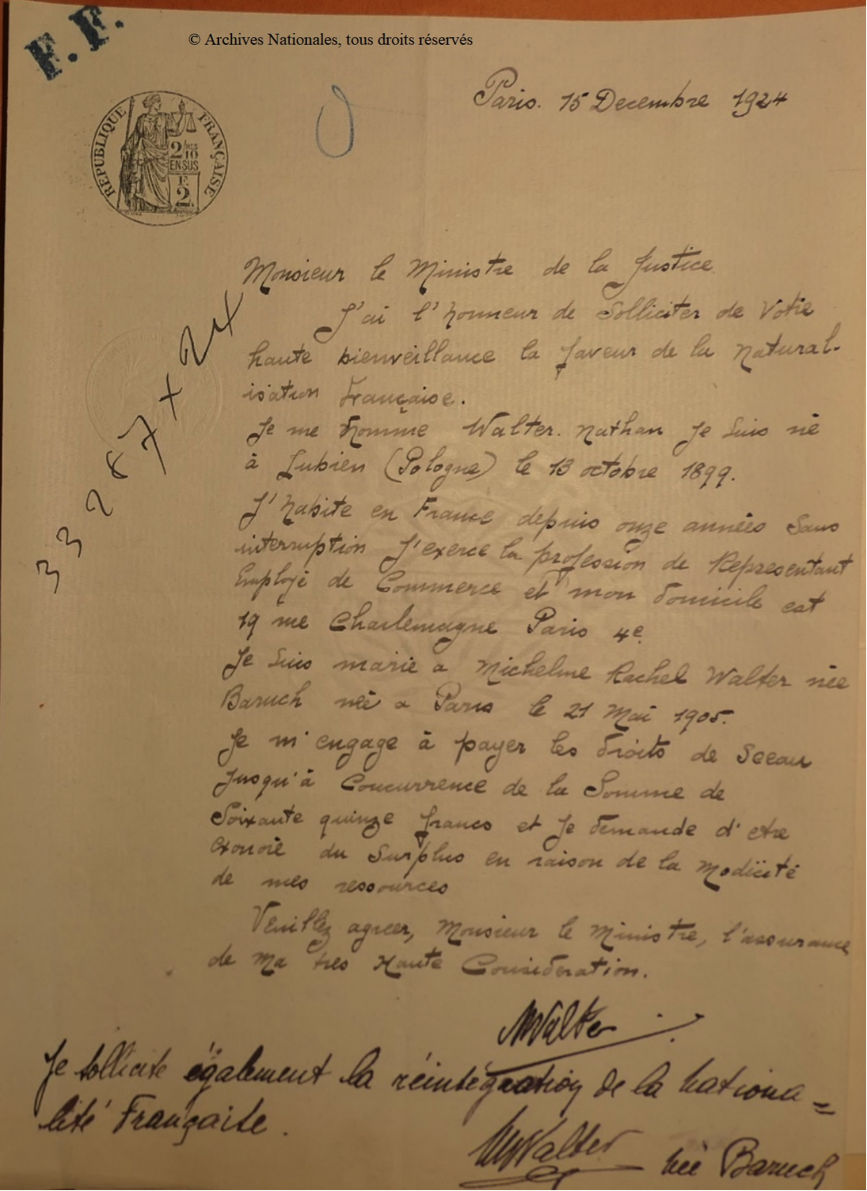 F.F.
© Archives Nationales, tous droits réservés
Paris. 15 Decembre 1924
RÉPUBLIQUE FRANÇAISE
2/10
EN SUS
F.
2.
33287 x 24
Monsieur le Ministre de la Justice
J'ai l'honneur de Solliciter de Votre
haute bienveillance la faveur de la Natural-
isation Française.
Je me nomme Walter. Nathan Je suis né
à Lubien (Pologne) le 13 octobre 1899.
J'habite en France depuis onze années sans
interruption J'exerce la profession de Representant
Employé de Commerce et mon domicile est
19 rue Charlemagne Paris 4e.
Je suis marié a Micheline Rachel Walter née
Baruch née a Paris le 21 Mai 1905.
Je m'engage à payer les droits de Sceau
Jusqu'à Concurrence de la Somme de
Soixante quinze francs et Je demande d'etre
exonoré du Surplus en raison de la modicité
de mes ressources
Veuillez agreer, Monsieur le Ministre, l'assurance
de Ma tres Haute Consideration.
NWalter
Je sollicite également la réintégration de la nationa=
lité Française.
MWalter née Baruch